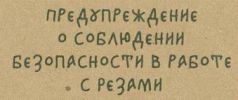 ПРЕДУПРЕЖДЕНИЕ
О СОБЛЮДЕНИИ
БЕЗОПАСНОСТИ В РАБОТЕ
С РЕЗАМИ